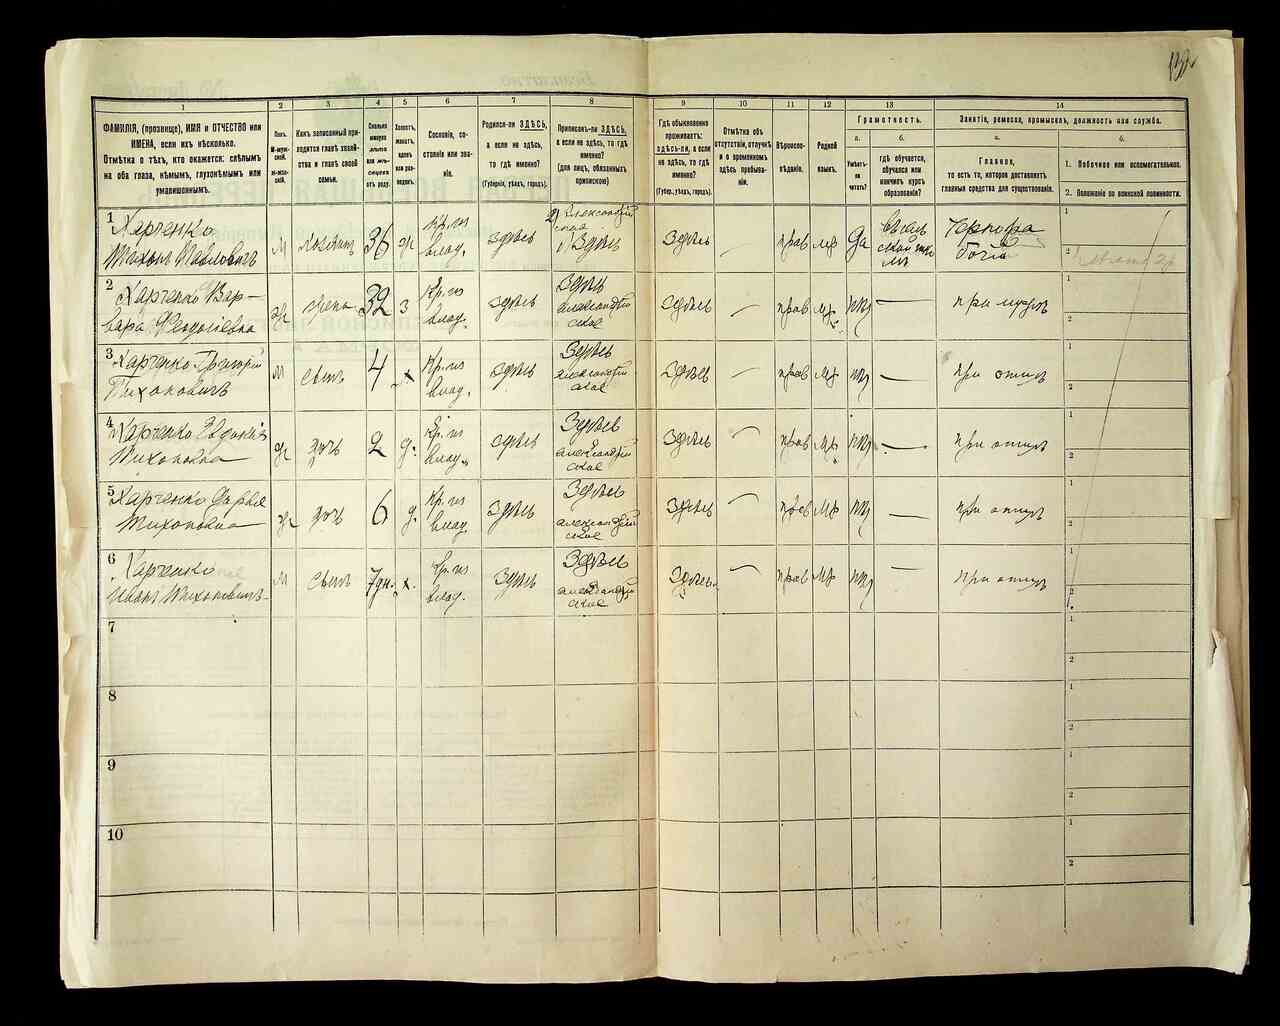 1
2
3
4
5
6
7
8
9
10
11
12
13
14
ФАМИЛІЯ, (прозвище), ИМЯ и ОТЧЕСТВО или
ИМЕНА, если ихъ нѣсколько.
Отмѣтка о тѣхъ, кто окажется: слѣпымъ
на оба глаза, нѣмымъ, глухонѣмымъ или
умалишоннымъ.
Полъ.
М-муж-
ской.
Ж-жен-
скій.
Какъ записанный при-
ходится главѣ хозяй-
ства и главѣ своей
семьи.
Сколько
отъ роду.
Сословіе, со-
стояніе или зва-
ніе.
Родился-ли ЗДѢСЬ,
а если не здѣсь,
то гдѣ именно?
(Губернія, уѣздъ, городъ).
Приписанъ-ли ЗДѢСЬ,
а если не здѣсь, то гдѣ
именно?
(для лицъ, обязанныхъ
припискою)
Гдѣ обыкновенно
проживаетъ:
здѣсь-ли, а если
не здѣсь, то гдѣ
именно?
(Губер., уѣздъ, городъ).
Отмѣтка объ
отсутствіи, отлучкѣ
и о временномъ
здѣсь пребыва-
ніи.
Вѣроиспо-
вѣданіе.
Родной
языкъ.
Грамотность.
а.
б.
Умѣетъ-
ли
читать?
гдѣ обучается,
обучался или
кончилъ курсъ
образованія?
Занятіе, ремесло, промыселъ, должность или служба.
а.
б.
Главное,
то есть то, которое доставляетъ
главныя средства для существованія.
1. Побочное или вспомогательное.
2. Положеніе по воинской повинности.
1
Харченко
Тихонъ Павловичъ
М
хозяинъ
36
ж
Кр. из
влад.
здѣсь
2) Александрій
ское
1) Здѣсь
Здѣсь
прав
мр
да
1
2
2
Харченко Вар-
вара Феодосіевна
ж
жена
32
з
Кр. из
влад.
здѣсь
Здѣсь
александрій
ское
Здѣсь
—
прав
мр.
—
при мужѣ
1
2
3
Харченко Григорій
Тихоновичъ
М
сынъ
4
х
Кр. из
влад.
здѣсь
Здѣсь
александрій
ское
Здѣсь
—
прав
мр
—
при отцѣ
1
2
4
Харченко Евдокія
Тихоновна
ж
дочь
2
д.
Кр. из
влад.
здѣсь
Здѣсь
александрій
ское
Здѣсь
—
прав
мр
—
при отцѣ
1
2
5
Харченко Дарья
Тихоновна
ж
дочь
6
д.
Кр. из
влад.
здѣсь
Здѣсь
александрій
ское
Здѣсь
—
прав
мр
—
при отцѣ
1
2
6
Харченко
Иванъ Тихоновичъ
М
сынъ
7 дн.
х.
Кр. из
влад.
здѣсь
Здѣсь
александрій
ское
Здѣсь
—
прав
мр
—
при отцѣ
1
2
7
1
2
8
1
2
9
1
2
10
1
2